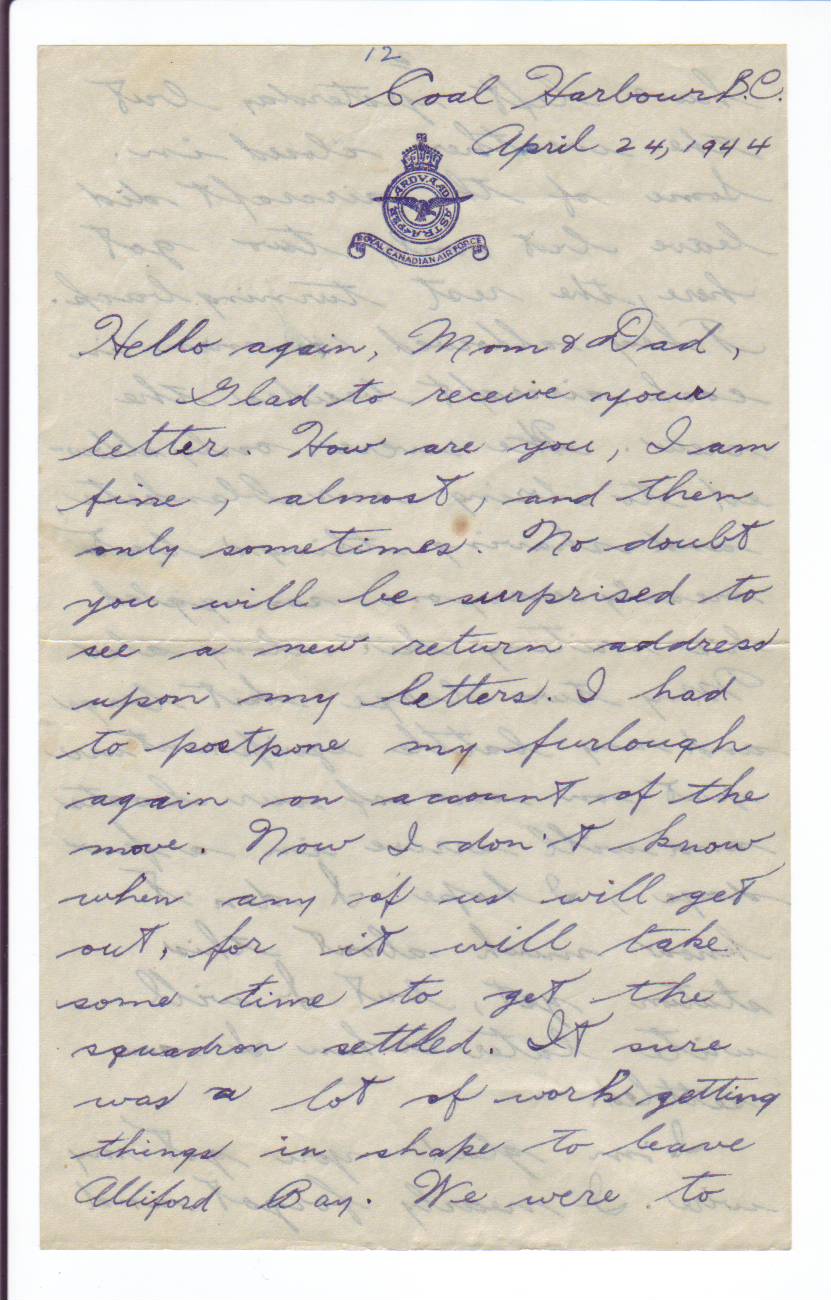 12
Coal Harbour B.C.
April 24, 1944
PER ARDVA AD ASTRA
ROYAL CANADIAN AIR FORCE
Hello again, Mom & Dad,
Glad to receive your
letter. How are you, I am
fine, almost, and then
only sometimes. No doubt
you will be surprised to
see a new return address
upon my letters. I had
to postpone my furlough
again on account of the
move. Now I don't know
when any of us will get
out, for it will take
some time to get the
squadron settled. It sure
was a lot of work getting
things in shape to leave
Alliford Bay. We were to